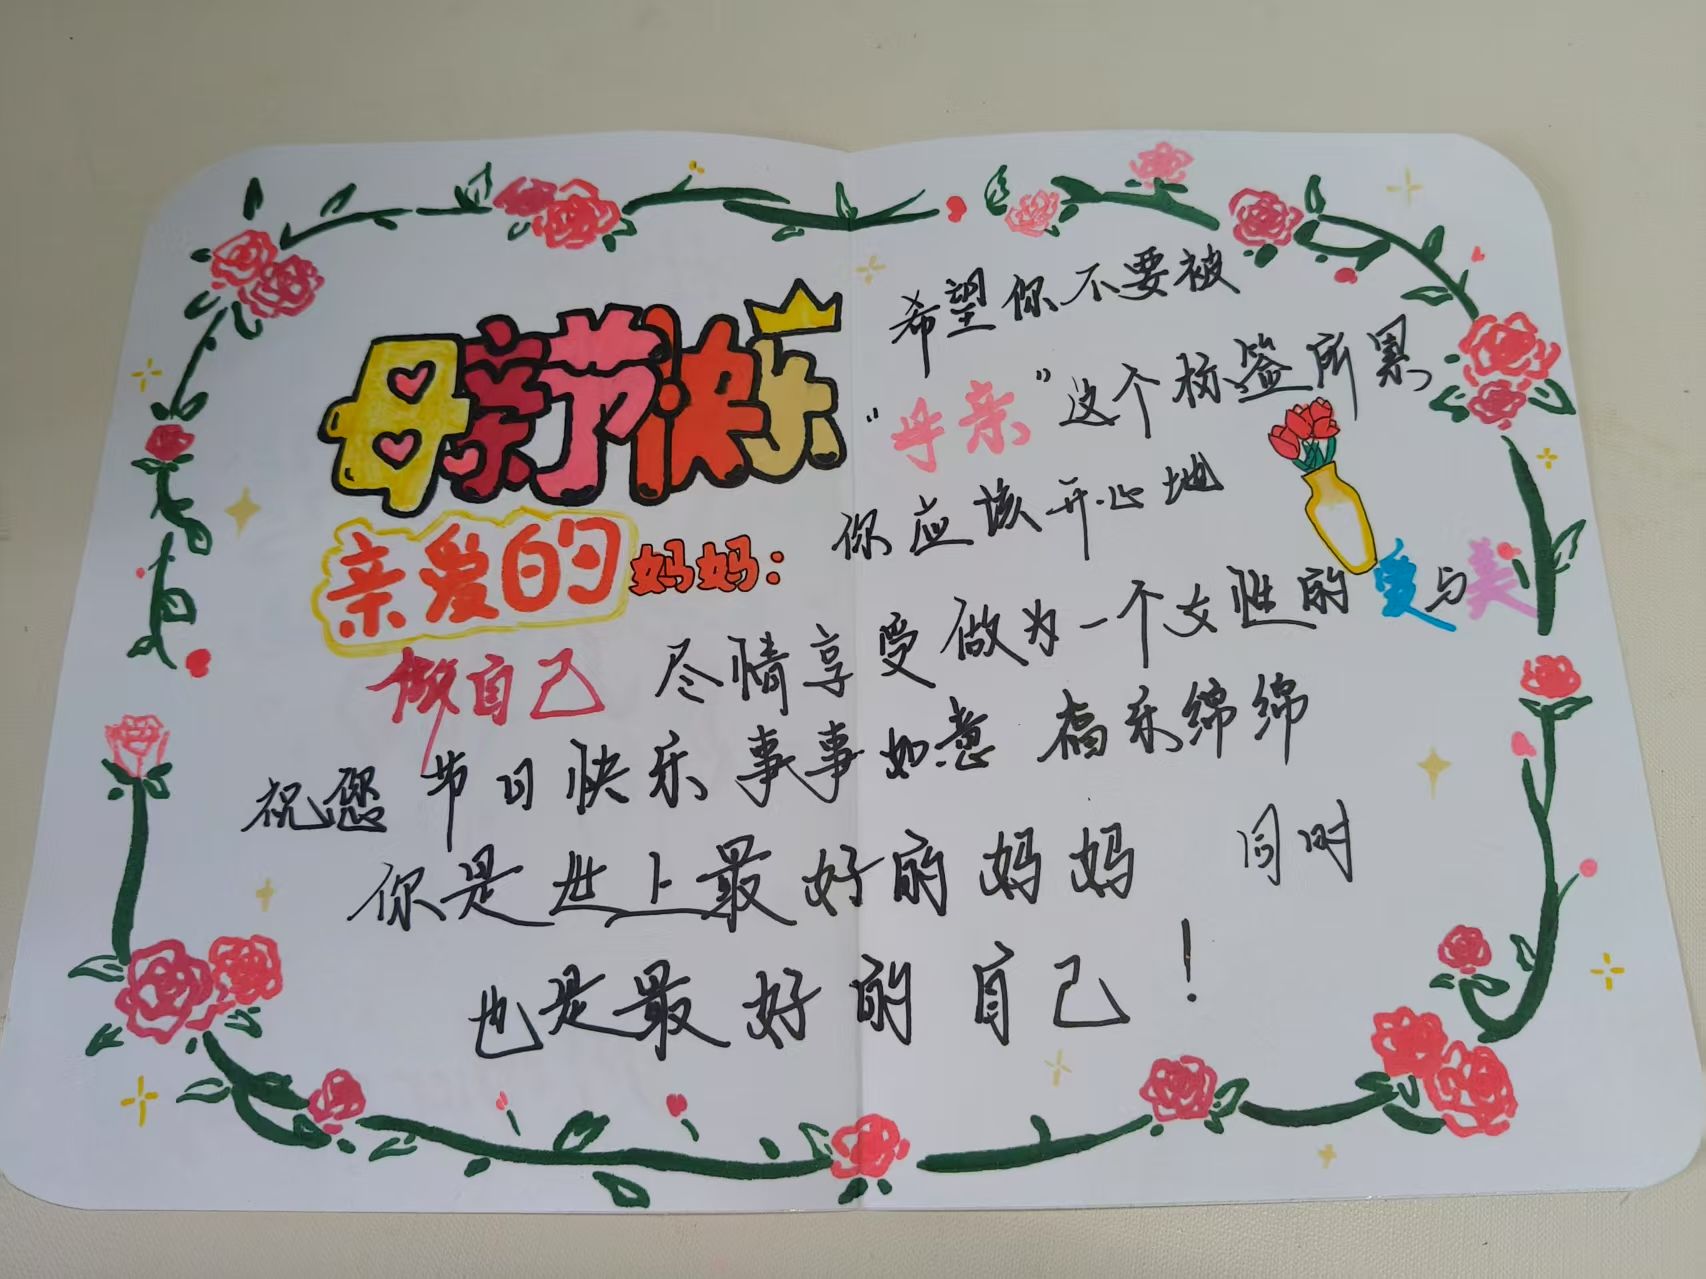 母亲节快乐
亲爱的妈妈：
希望你不要被
“母亲”这个标签所累
你应该开心地
做自己 尽情享受做为一个女性的爱与美
祝您 节日快乐 事事如意 福乐绵绵
你是世上最好的妈妈 同时
也是最好的自己！